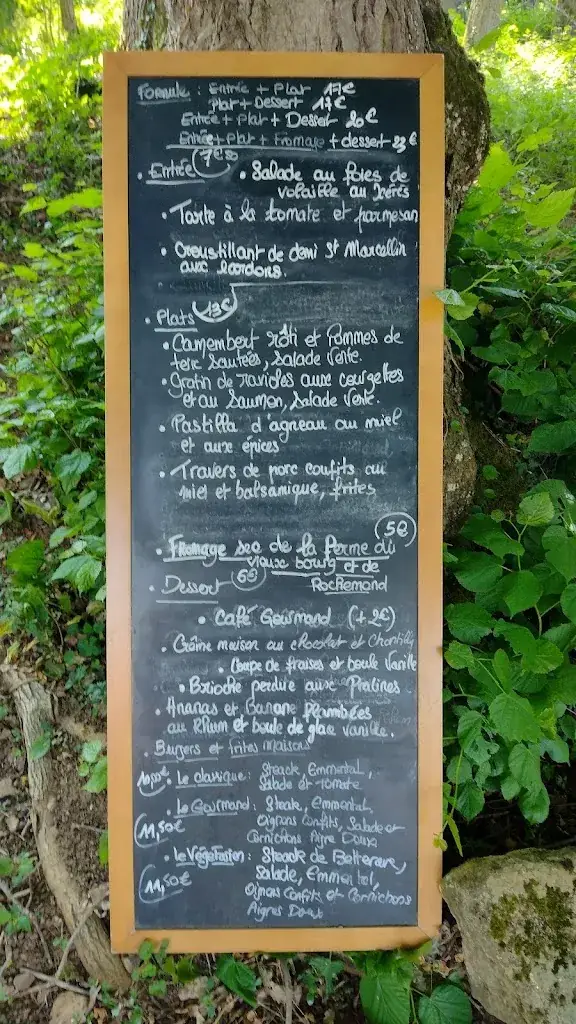 Formule : Entrée + Plat 17€
Plat + Dessert 17€
Entrée + Plat + Dessert 20€
Entrée + Plat + Fromage + dessert 23€
• Entrée 7€50 • Salade au foies de
volaille au Xérès
• Tarte à la tomate et parmesan
• Croustillant de demi St Marcellin
aux lardons.
• Plats 13€
• Camembert rôti et Pommes de
terre Sautées, Salade Verte.
• Gratin de ravioles aux courgettes
et au Saumon, Salade Verte.
• Pastilla d'agneau au miel
et aux épices
• Travers de porc confits au
miel et balsamique, frites
5€
• Fromage sec de la ferme du
vieux bourg et de
• Dessert 6€ Rochemond
• Café Gourmand (+2€)
• Crème maison au chocolat et Chantilly
• Coupe de fraises et boule Vanille
• Brioche perdue aux Pralines
• Ananas et Banane flambées
au Rhum et boule de glace vanille.
• Burgers et frites maison
10,50€ • Le classique : Steack, Emmental,
Salade et Tomate
• Le Gourmand : Steack, Emmental,
11,50€ Oignons Confits, Salade et
Cornichons Aigre Doux
• Le Végétarien : Steack de Betterave,
Salade, Emmental,
11,50€ Oignons Confits et Cornichons
Aigres Doux